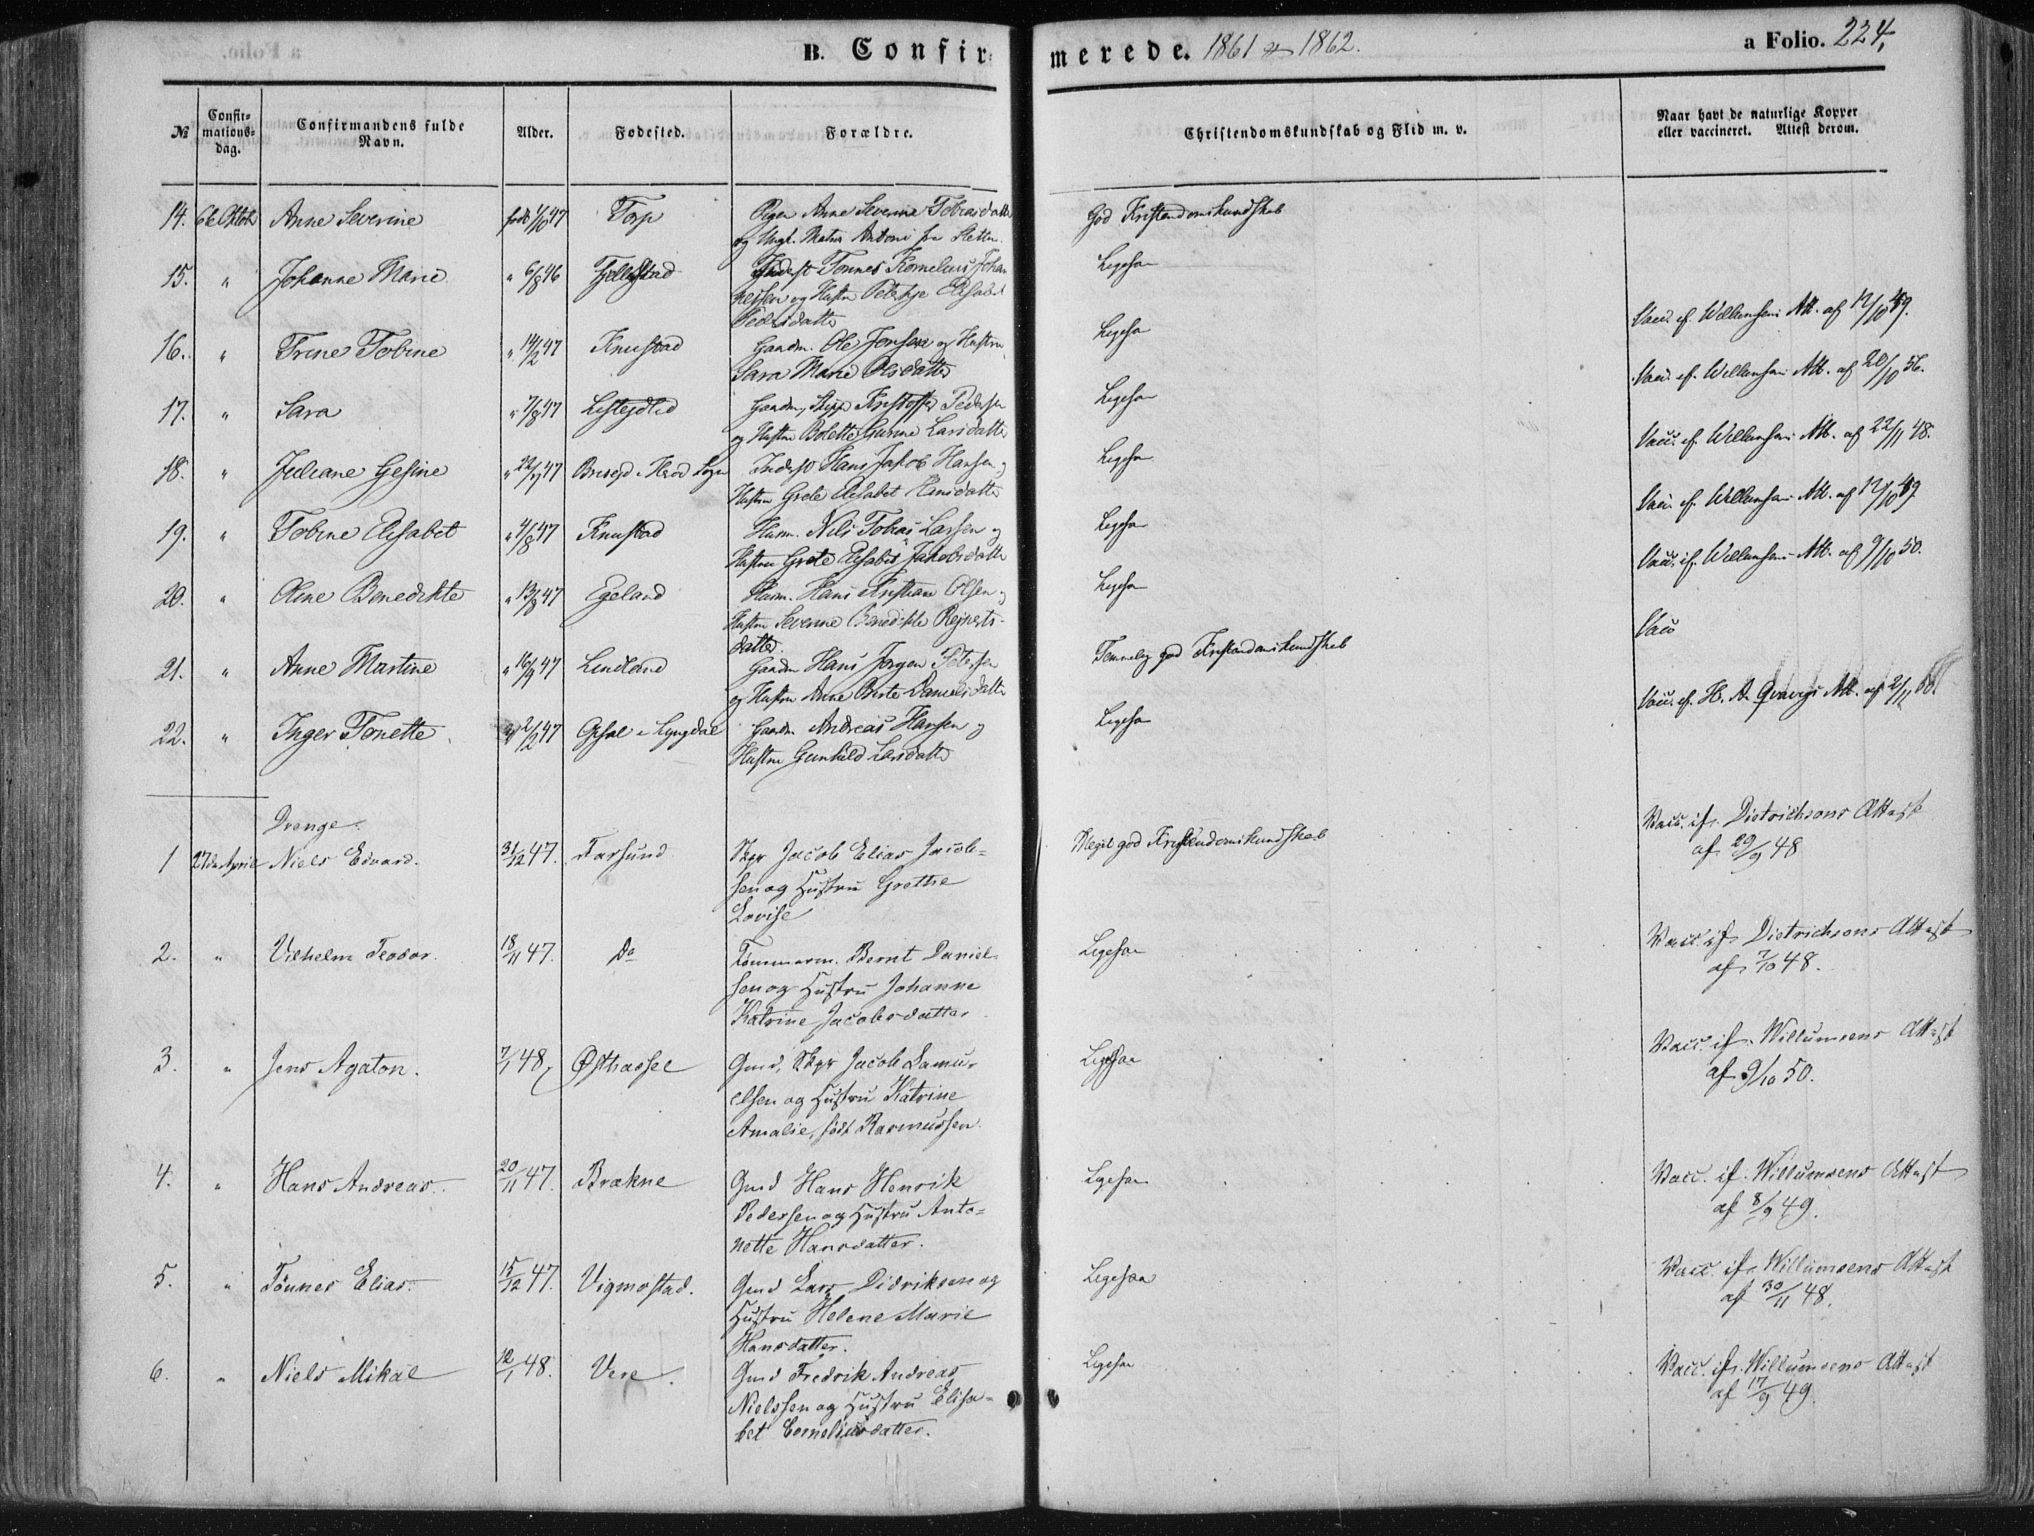 B. Confirmerede. 1861 & 1862. a Folio. 224,
№ Confirmations-dag. Confirmandens fulde Navn. Alder. Fødested. Forældre. Christendomskundskab og Flid m. v. Naar havt de naturlige Kopper eller vaccineret. Attest derom.
14. 6te Oktobr Anne Severine født 1/10 47 Torp Pigen Anne Severine Tobiasdatter God Kristendomskundskab
og Ungk. Antoni fra
15. " Johanne Marie " 6/8 46 Fjellestad Indest Tønnes Kornelius Johan Ligesaa
nessen og Hustru Elisabet
Pedersdatter Vacc. if. Willumsens Att. af 17/10 49.
16. " Trine Tobine " 14/2 47 Knustad Gaardm. Ole Jensen og Hustru Ligesaa
Sara Marie Olsdatter Vacc. if. Willumsens Att. af 20/10 56.
17. " Sara " 7/8 47 Gaardm, Skipp Kristoffer Pedersen Ligesaa
og Hustru Bolette Gurine Larsdatter Vacc. if. Willumsens Att. af 22/11 48.
18. " Juliane Gesine " 22/9 47 Sogn Inderst Hans Jakob Hansen og Ligesaa
Hustru Grete Elisabet Hansdatter Vacc. if. Willumsens Att. af 17/10 49
19. " Tobine Elisabet " 4/8 47 Knustad Husm. Nils Tobias Larsen og Ligesaa
Hustru Grete Elisabet Jakobsdatter Vacc. if. Willumsens Att. af 9/10 50.
20. " Oline Benedikte " 13/8 47 Egeland Husm. Hans Kristian Olsen og Ligesaa
Hustru Severine Benedikte Reiners-
datter. Vacc
21. " Anne Martine " 16/9 47 Lindland Gaardm Hans Jørgen Petersen Temmelig god Kristendomskundskab
og Hustru Anne Berte Danielsdatter Vacc. if. H. A. Qvavigs Att. af 2/11
22. " Inger Tonette 2/2 47 Opsal i Lyngdal Gaardm. Andreas Hansen og Ligesaa
Hustru Gunhild Larsdatter
Drenge.
1 27de April Niels Edvard. 31/12 47. Farsund Skpr Jacob Elias Jacob- Meget god Kristendomskundskab Vacc. if. Dietrichsons Attest
sen og Hustru Grethe af 29/9 48
Lovise
2. " Vilhelm Teodor. 18/11 47. Do Tømmerm. Bernt Daniel- Ligesaa Vacc. if. Dietrichsons Attest
sen og Hustru Johanne af 7/10 48.
Katrine Jacobsdatter
3. " Jens Agaton. 7/1 48, Østhassel Gmd, Skpr Jacob Samu- Ligesaa Vacc. if. Willumsens Attest
elsen og Hustru Katrine af 9/10 50.
Amalie, født Rasmussen.
4. " Hans Andreas. 20/11 47. Brækne Gmd Hans Henrik Ligesaa Vacc. if. Willumsens Attest
Pedersen og Hustru Anto- af 8/9 49.
nette Hansdatter.
5. " Tønnes Elias. 15/12 47. Vigmostad. Gmd Lars Didriksen og Ligesaa Vacc. if. Willumsens Attest
Hustru Helene Marie af 30/11 48.
Hansdatter.
6. " Niels Mikal 12/1 48. Vere. Gmd Fredrik Andreas Ligesaa Vacc. if. Willumsens Attest
Nielssen og Hustru Elisa- af 17/9 49.
bet Corneliusdatter.